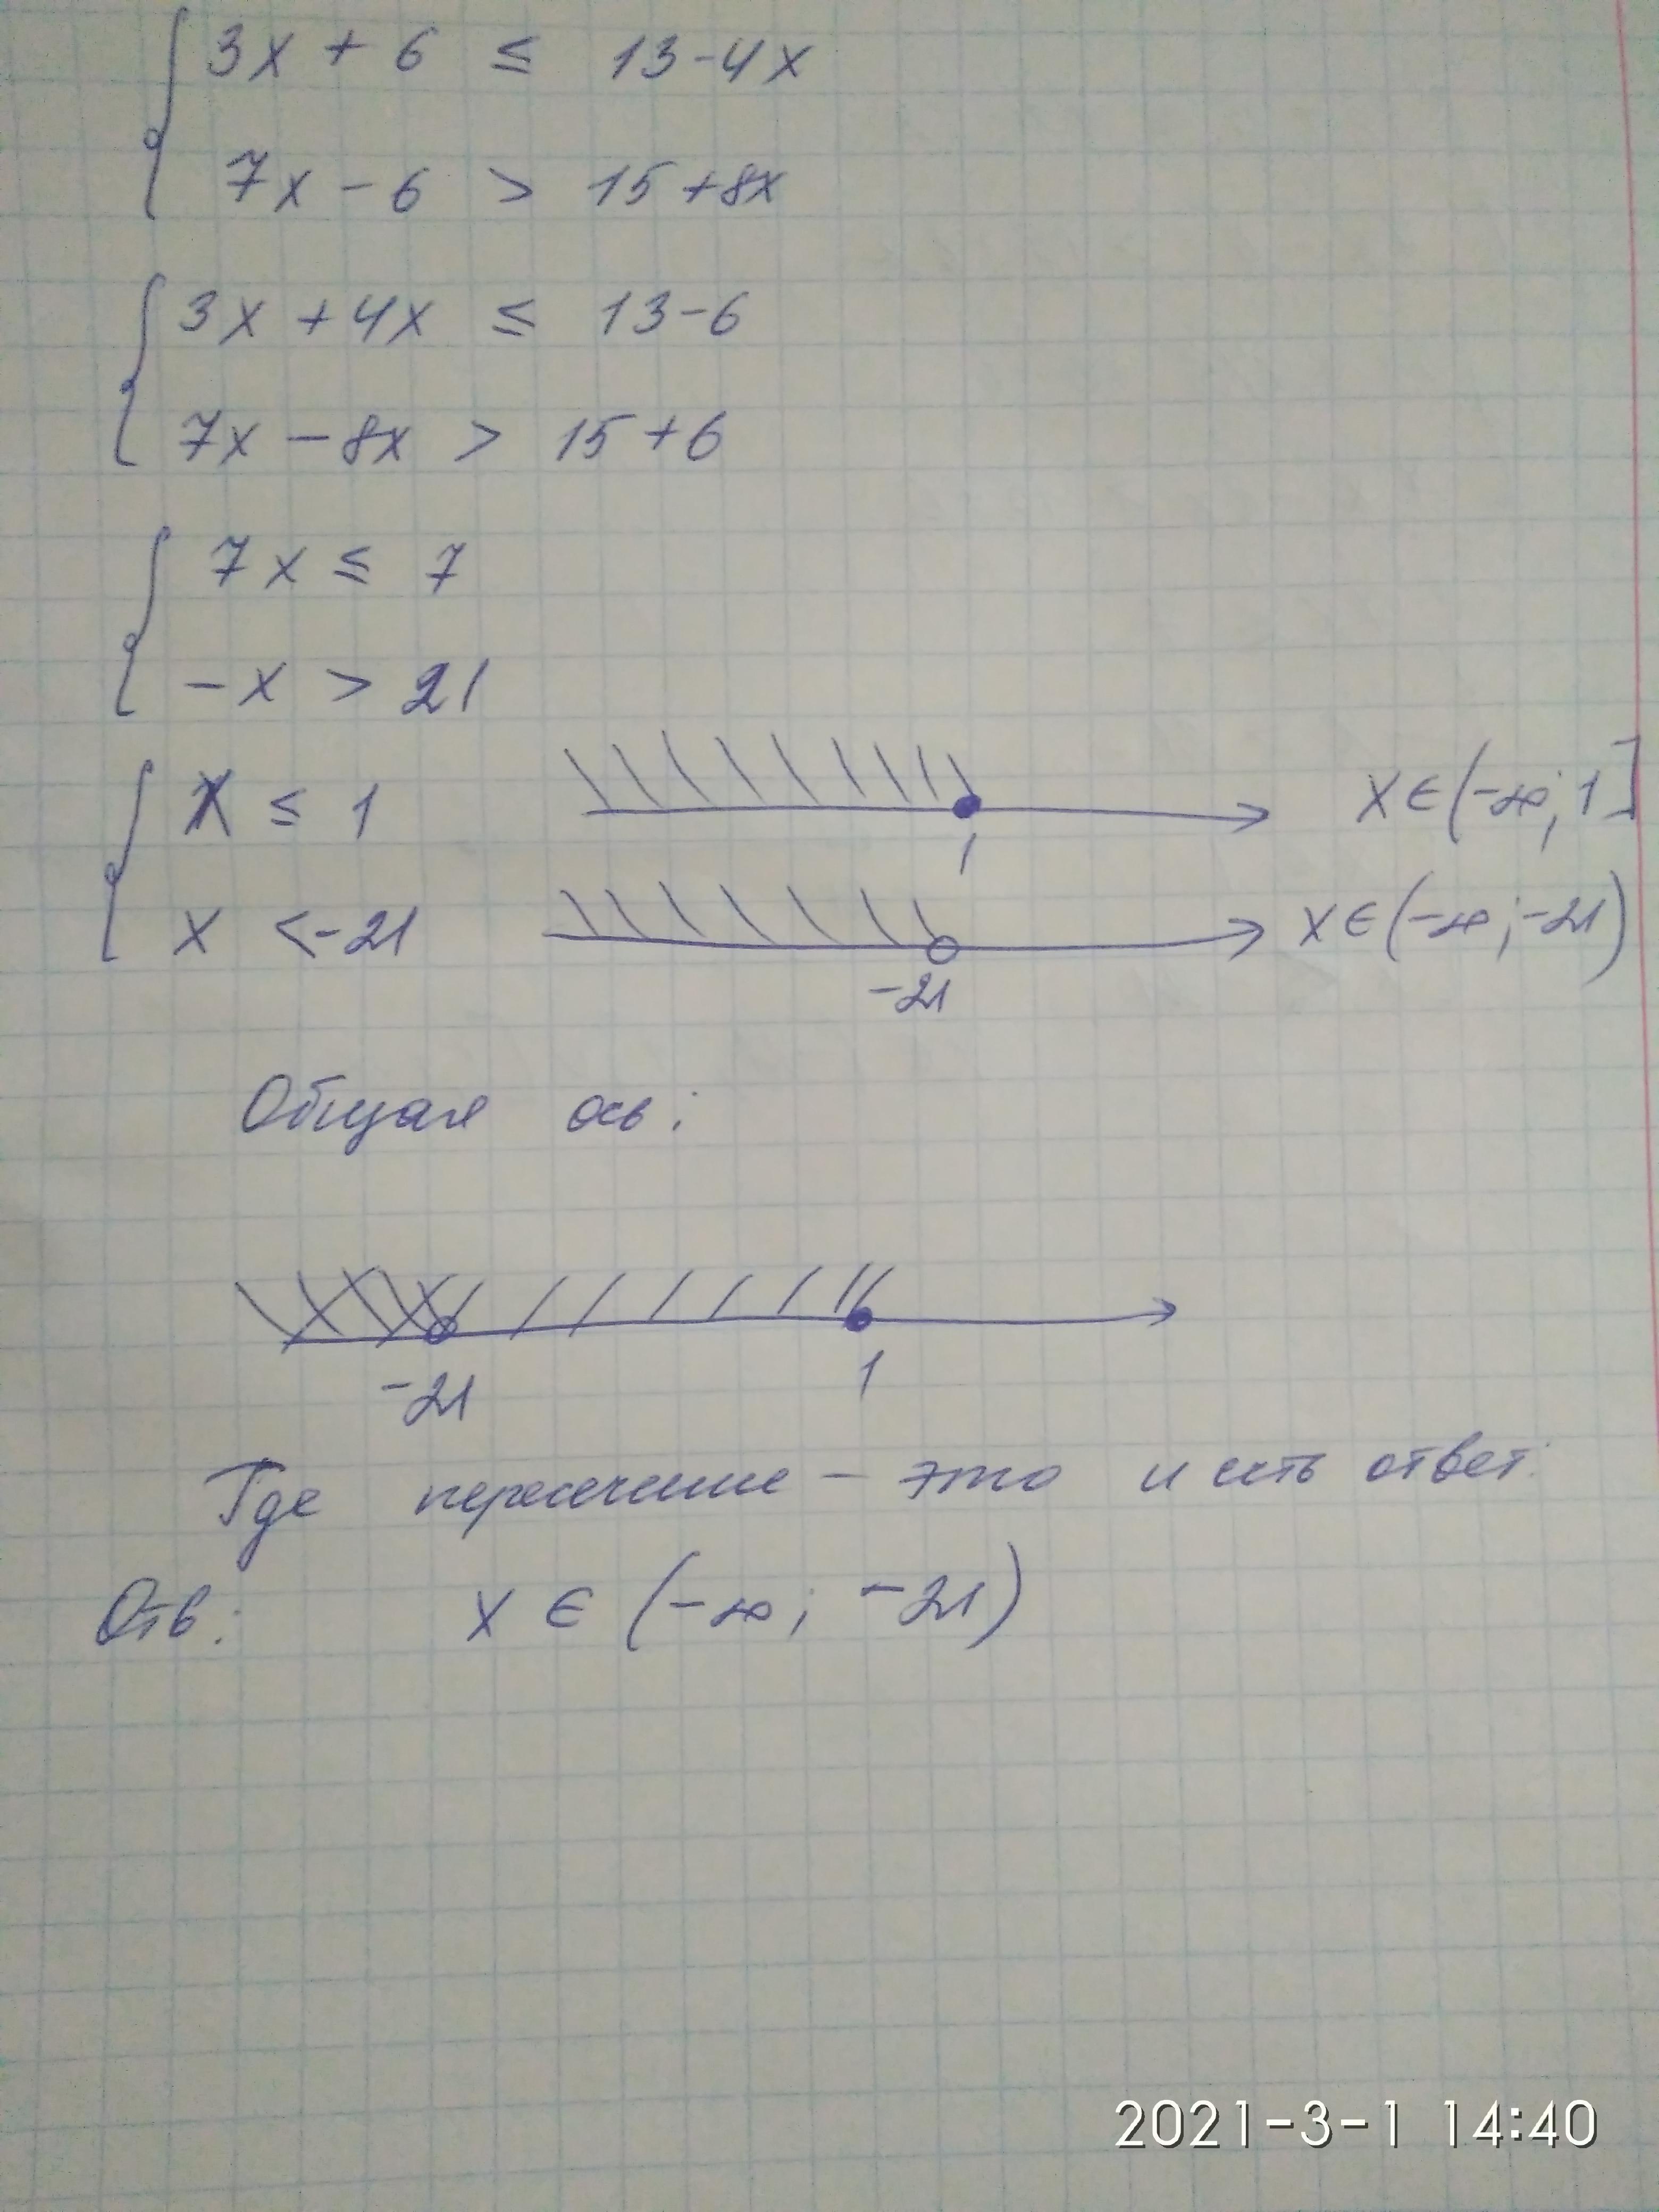 3x + 6 ≤ 13-4x
7x - 6 > 15+8x
3x + 4x ≤ 13-6
7x - 8x > 15+6
7x ≤ 7
-x > 21
x ≤ 1
1
x∈(-∞; 1]
x <-21
-21
x∈(-∞; -21)
Общая ось:
-21 1
Где пересечение - это и есть ответ.
Отв: x ∈ (-∞; -21)
2021-3-1 14:40